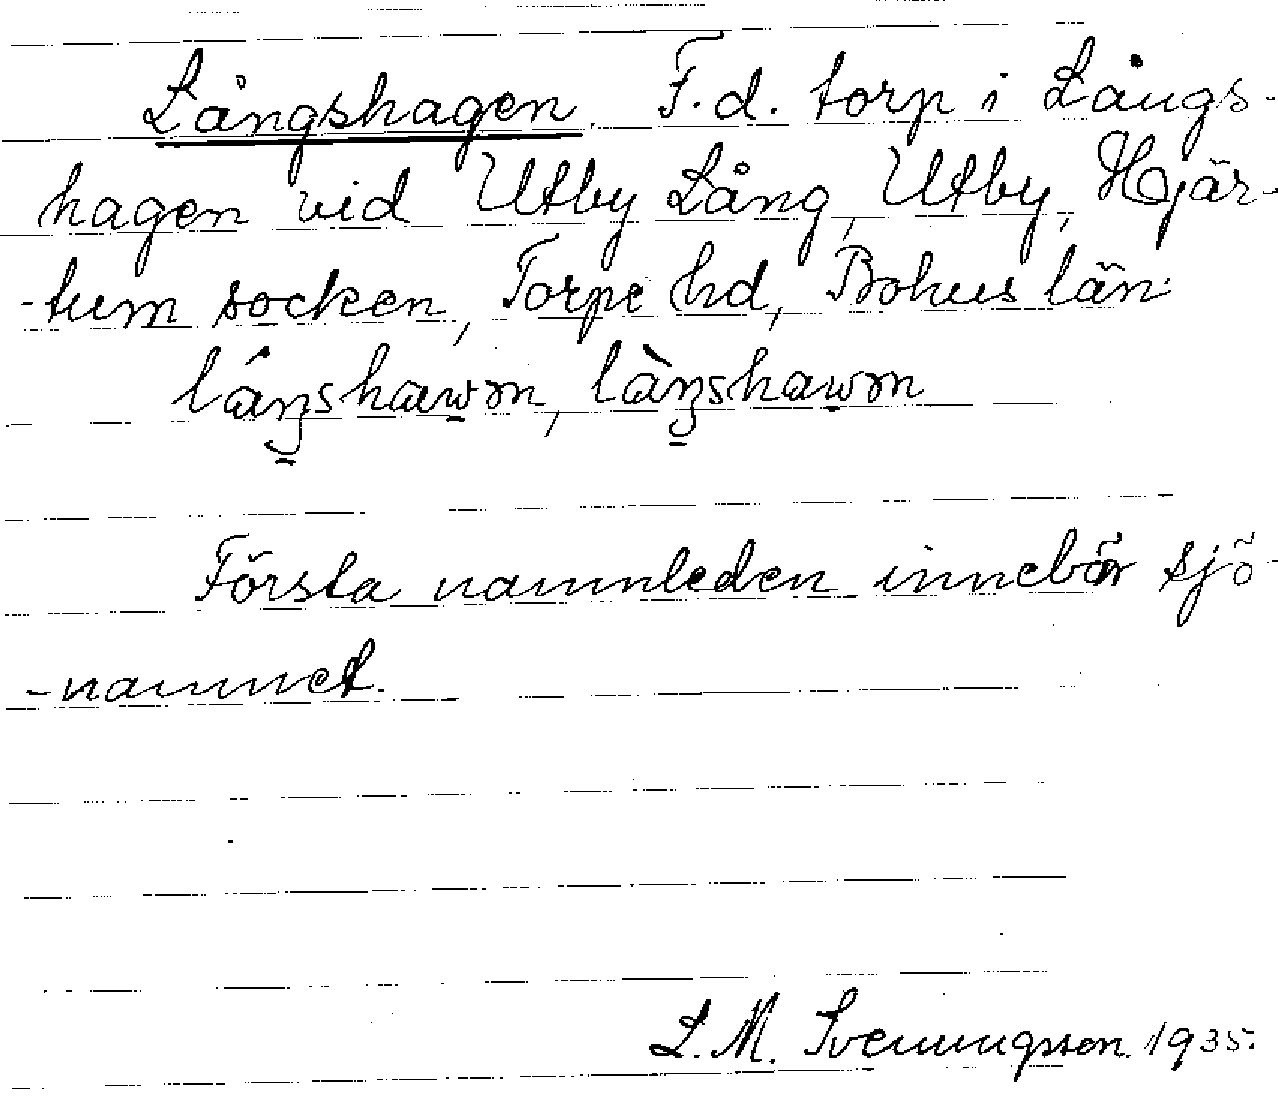 Långshagen. F.d. torp i Långs-
hagen vid Utby Lång, Utby, Hjär-
-tum socken, Torpe hd, Bohus län:
lángshawn, làngshawn
Första namnleden innebär sjö-
-namnet.
L. M. Svenungsson 1935.